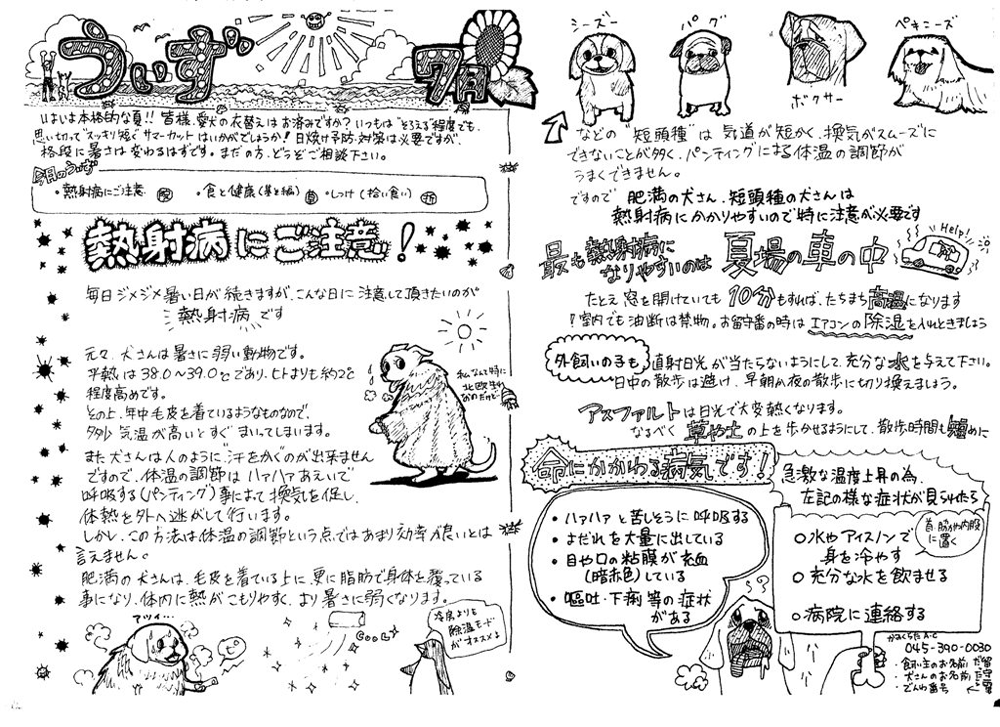 うぃず
7月
いよいよ本格的な夏!! 皆様、愛犬の衣替えはお済みですか? いつもは"そろえる"程度でも、
思い切って"スッキリ短く"サマーカットはいかがでしょうか! 日焼け予防・対策は必要ですが、
格段に暑さは変わるはずです。まだの方、どうぞご相談下さい。
今月のうぃず
・熱射病にご注意
・食と健康(
編)
・しつけ(拾い食い)
熱射病にご注意!
毎日ジメジメ暑い日が続きますが、こんな日に注意して頂きたいのが
熱射病です
元々、犬さんは暑さに弱い動物です。
平熱は38.0~39.0℃であり、ヒトよりも約2℃
程度高めです。
その上、年中毛皮を着ているようなものなので、
多少気温が高いとすぐまいってしまいます。
また犬さんは人のように汗をかくのが出来ません
ですので、体温の調節はハァハァあえいで
呼吸する(パンティング)事によって換気を促し、
体熱を外へ逃がして行います。
しかし、この方法は体温の調節という点ではあまり効率が良いとは
言えません。
肥満の犬さんは、毛皮を着ている上に、更に脂肪で身体を覆っている
事になり、体内に熱がこもりやすく、より暑さに弱くなります。
私なんて特に
北欧生まれ
なのだけど…
アツィ…
COOL
冷房よりも
除湿モード
がオススメよ
シーズー
パグ
ボクサー
ペキニーズ
などの"短頭種"は気道が短かく、換気がスムーズに
できないことが多く、パンティングによる体温の調節が
うまくできません。
ですので 肥満の犬さん、短頭種の犬さんは
熱射病にかかりやすいので特に注意が必要です
最も熱射病に
なりやすいのは
夏場の車の中
Help!
たとえ窓を開けていても10分もすれば、たちまち高温になります
!室内でも油断は禁物。お留守番の時はエアコンの除湿を入れときましょう
外飼いの子も
直射日光が当たらないようにして、充分な水を与えて下さい。
日中の散歩は避け、早朝か夜の散歩に切り換えましょう。
アスファルトは日光で大変熱くなります。
なるべく草や土の上を歩かせるようにして、散歩時間も短めに
命にかかわる病気です!
・ハァハァと苦しそうに呼吸する
・よだれを大量に出している
・目や口の粘膜が充血
(暗赤色)している
・嘔吐・下痢等の症状
がある
急激な温度上昇の為、
左記の様な症状が見られたら
○水やアイスノンで
身を冷やす
首、脇や内股
に置く
○充分な水を飲ませる
○病院に連絡する
かまくらだA・C
045-390-0030
・飼い主のお名前
・犬さんのお名前
・でんわ番号